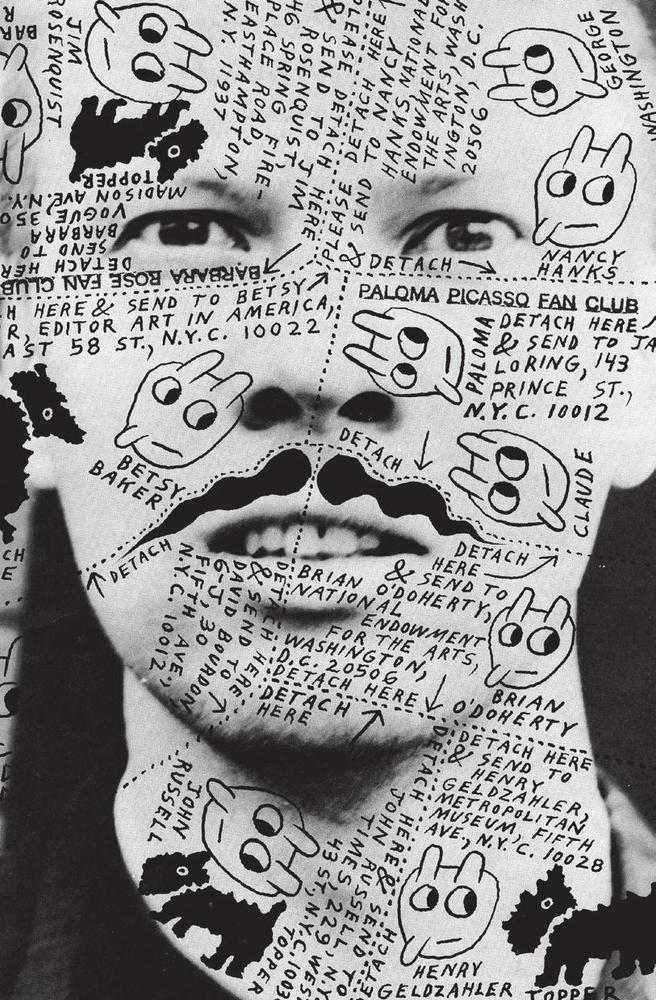 JIM
ROSENQUIST
BAR
& SEND DETACH HERE
PLEASE DETACH HERE
& SEND TO JIM
ROSENQUIST,
46 SPRING FIRE-
PLACE ROAD,
EASTHAMPTON,
N.Y. 11937
PLEASE DETACH HERE
& SEND TO NANCY
HANKS, NATIONAL
ENDOWMENT FOR
THE ARTS, WASH
INGTON, D.C.
20506
GEORGE
WASHINGTON
NANCY
HANKS
DETACH
TOPPER
BARBARA ROSE FAN CLUB
DETACH HER
& SEND TO
BARBARA
VOGUE, 350
MADISON AVE. N.Y.
H HERE & SEND TO BETSY
R, EDITOR ART IN AMERICA,
AST 58 ST., N.Y.C. 10022
BETSY
BAKER
PALOMA PICASSO FAN CLUB
PALOMA
DETACH HERE
& SEND TO JA
LORING, 143
PRINCE ST.,
N.Y.C. 10012
DETACH
CLAUDE
DETACH
DETACH
HERE
CH
E
DETACH HERE
& SEND TO
DAVID BOURDON
6-J, 30
FIFTH AVE,
N.Y.C. 10012
DETACH
HERE
& SEND TO
BRIAN O'DOHERTY,
NATIONAL
ENDOWMENT
FOR THE ARTS,
WASHINGTON,
D.C. 20506
DETACH HERE
BRIAN
O'DOHERTY
DETACH HERE
& SEND TO
HENRY
GELDZAHLER,
METROPOLITAN
MUSEUM, FIFTH
AVE, N.Y.C. 10028
JOHN
RUSSELL
DETACH HERE & SEND TO
JOHN RUSSELL, N.Y.
TIMES, 229 WEST
43 ST. N.Y.C. 1003
TOPPER
DETACH
HENRY
GELDZAHLER
TOPPER